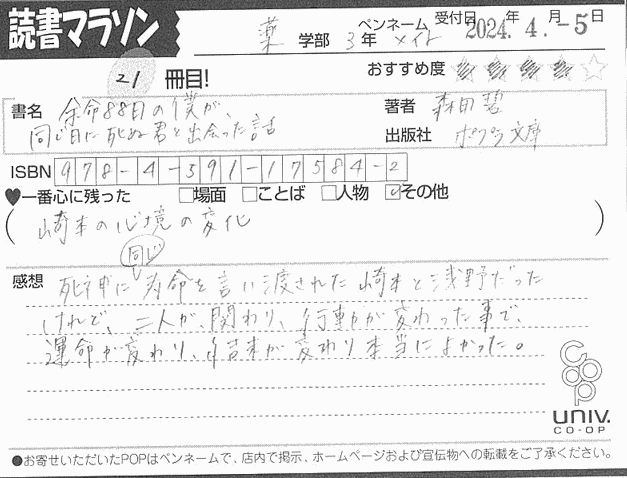 読書マラソン
薬 学部 3年 ペンネーム メイト 受付日 2024年 4.月-5日
21 冊目! おすすめ度 ★★★★☆
書名 余命88日の僕が、
同じ日に死ぬ君と出会った話
著者 森田碧
出版社 ポプラ文庫
ISBN 978-4-591-17584-2
♥一番心に残った □場面 □ことば □人物 ☑その他
(崎本の心境の変化)
感想 死神に同じ寿命を言い渡された崎本と浅野だった
けれど、二人が、関わり、行動が変わった事で、
運命が変わり、結末が変わり本当によかった。
coop
UNIV.
CO-OP
●お寄せいただいたPOPはペンネームで、店内で掲示、ホームページおよび宣伝物への転載をご了承ください。